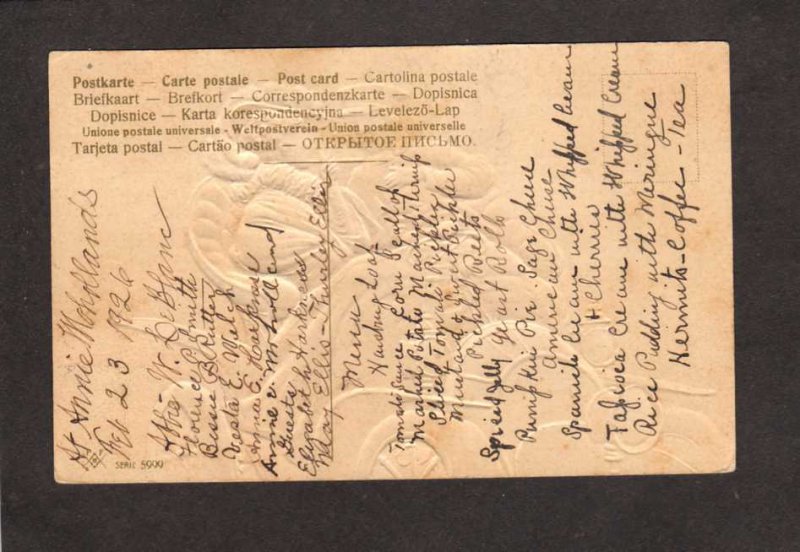 Postkarte — Carte postale — Post card — Cartolina postale
Briefkaart — Brefkort — Correspondenzkarte — Dopisnica
Dopisnice — Karta korespondencyjna — Levelező-Lap
Unione postale universale - Weltpostverein - Union postale universelle
Tarjeta postal — Cartão postal — ОТКРЫТОЕ ПИСЬМО.
At Annie McHollands
Feb 23 1926
Abra W. LeBlanc
Florence Smith
Bessie B Rutter
Vesta E. Welch
Anna E.
Annie E. McHolland
Guests
Elizabeth Harkness
May Ellis - Thursley Ellis
Menu
Hamburg Loaf
Tomato Sauce Corn Scallop
Mashed Potato Mashed Turnip
Spiced Tomato Pickles
Mustard & Sweet Pickles
Pickled Beets
Spiced Jelly Yeast Rolls
Pumpkin Pie Sage Cheese
American Cheese
Spanish Cream with Whipped Cream
& Cherries
Tapioca Cream with Whipped Cream
Rice Pudding with Meringue
Hermits - Coffee - Tea
SERIE 5999